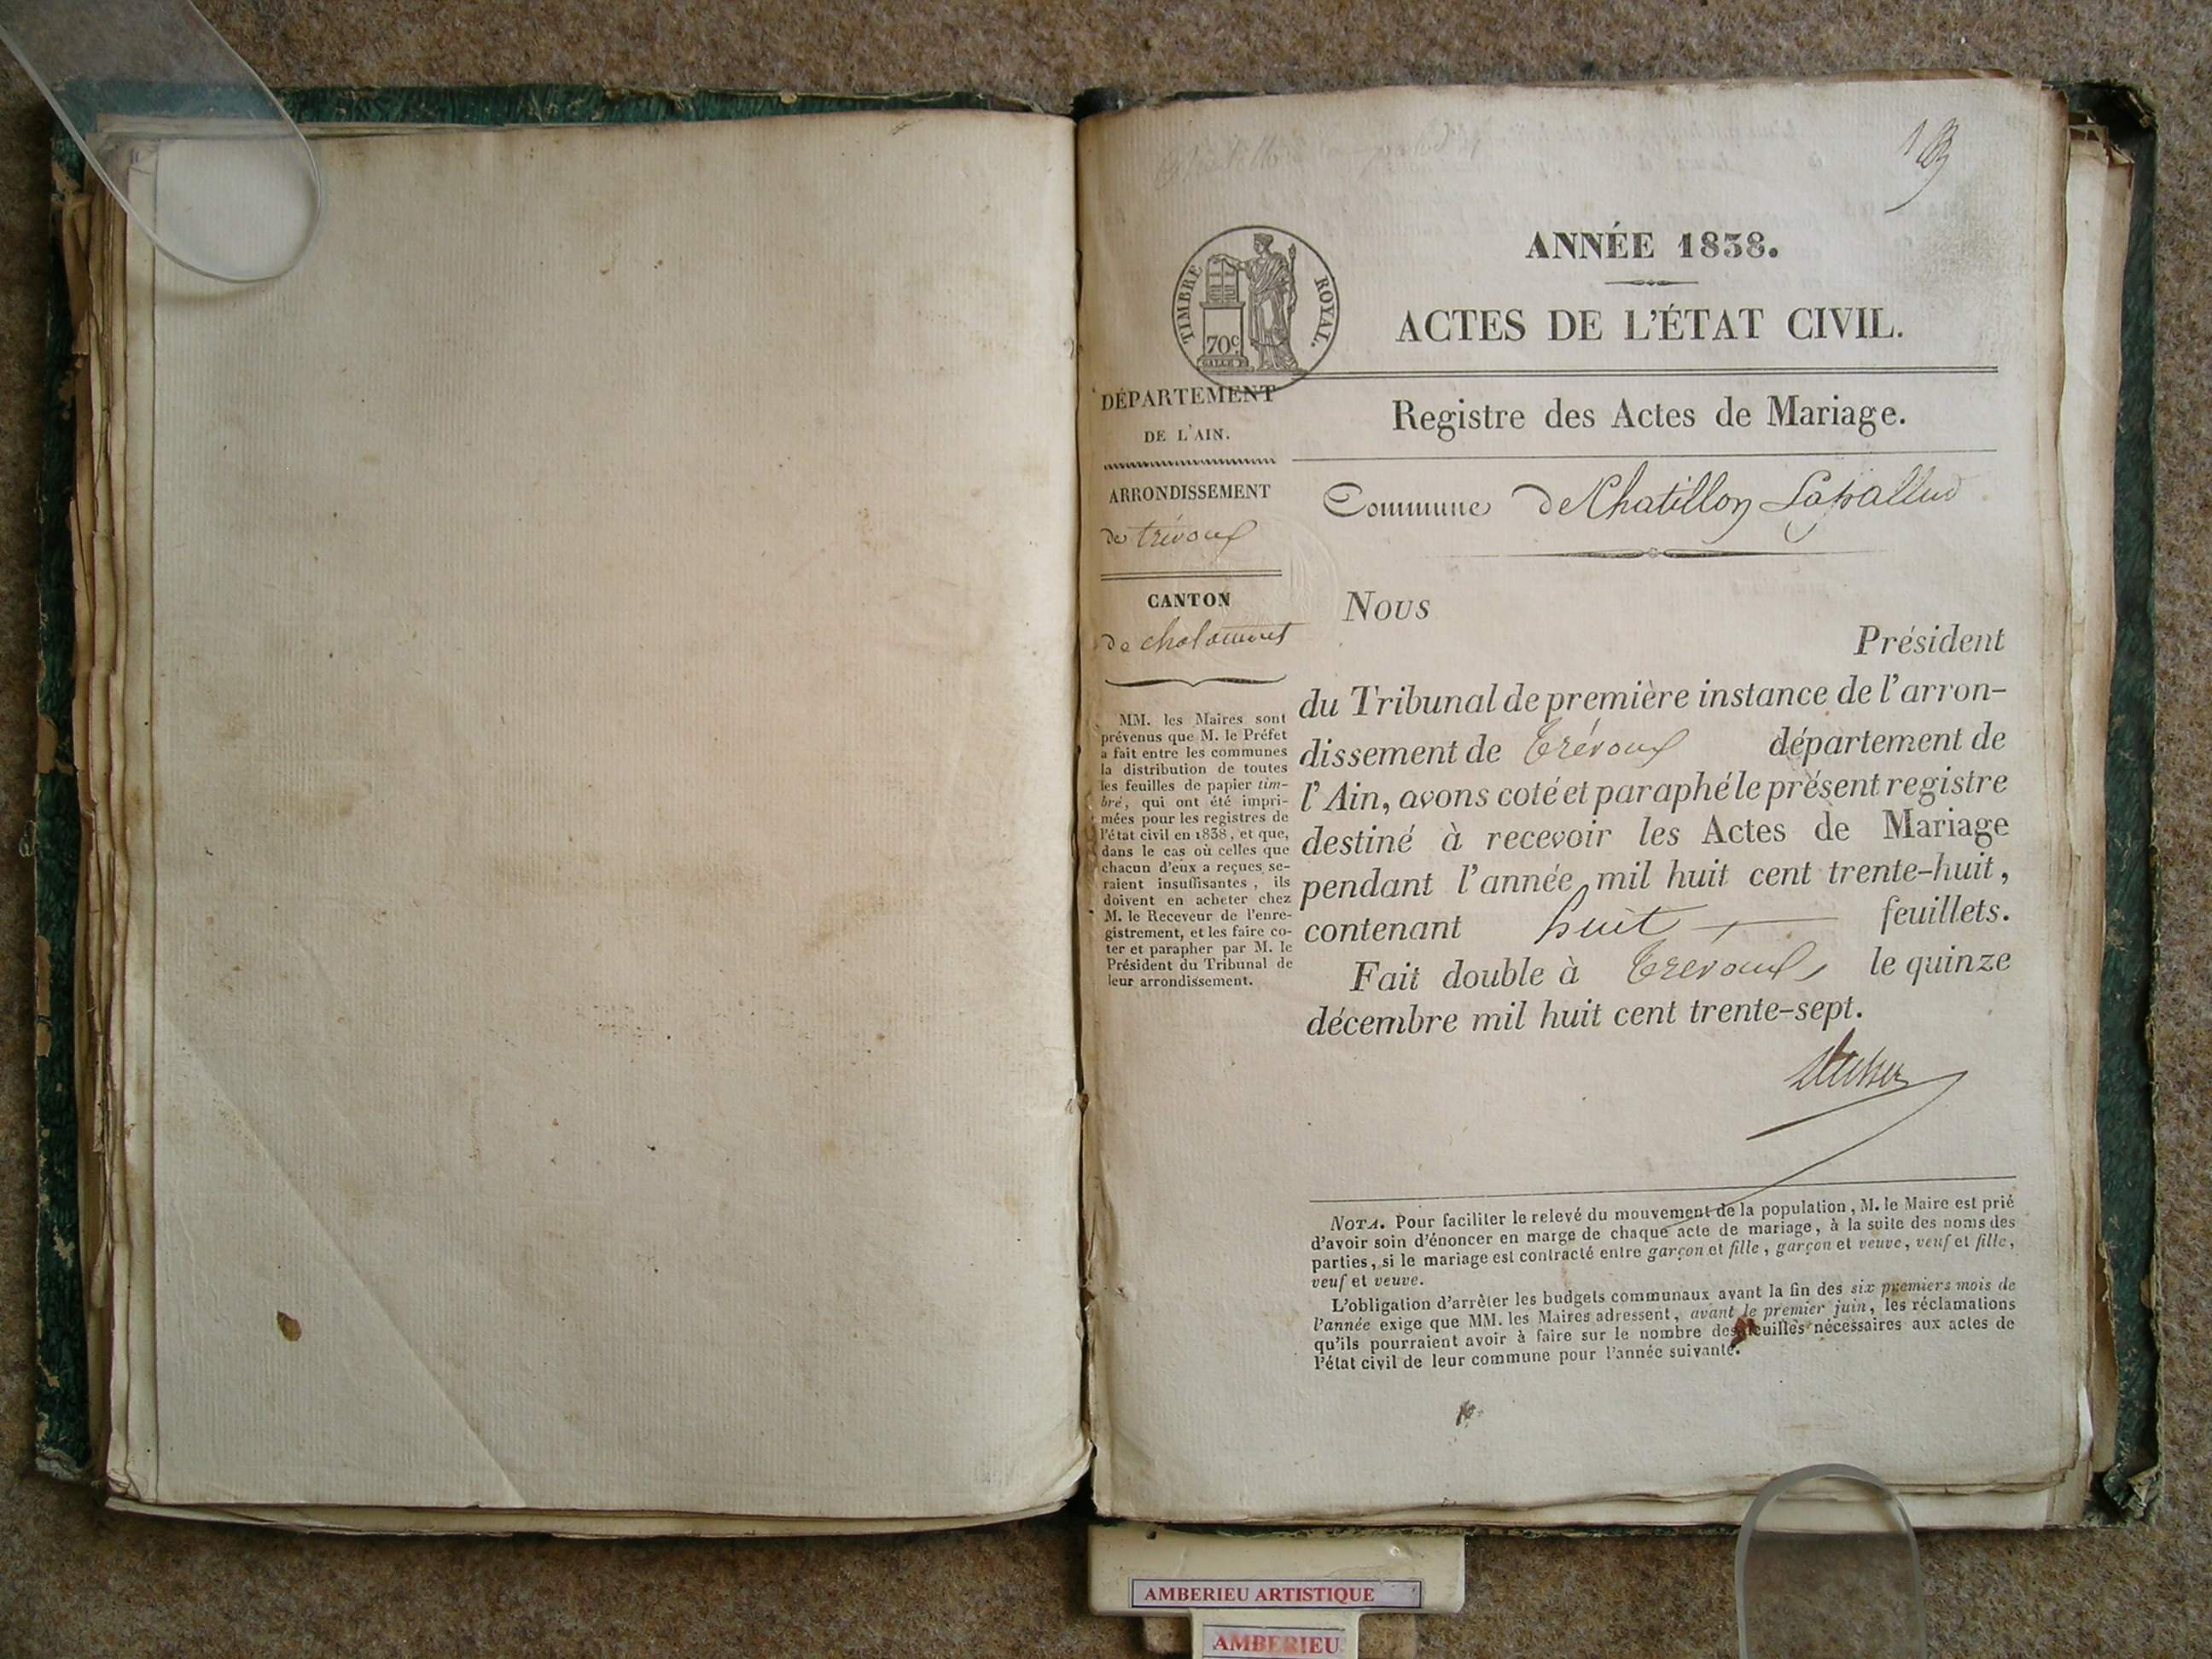 ANNÉE 1838.
ACTES DE L'ÉTAT CIVIL.
TIMBRE ROYAL.
70c
DÉPARTEMENT
DE L'AIN.
ARRONDISSEMENT
de trévoux
CANTON
de chalamont
MM. les Maires sont
prévenus que M. le Préfet
a fait entre les communes
la distribution de toutes
les feuilles de papier tim-
bré, qui ont été impri-
mées pour les registres de
l'état civil en 1838, et que,
dans le cas où celles que
chacun d'eux a reçues se-
raient insuffisantes, ils
doivent en acheter chez
M. le Receveur de l'enre-
gistrement, et les faire co-
ter et parapher par M. le
Président du Tribunal de
leur arrondissement.
Registre des Actes de Mariage.
Commune de Chatillon Lapallud
Nous
Président
du Tribunal de première instance de l'arron-
dissement de Trévoux département de
l'Ain, avons coté et paraphé le présent registre
destiné à recevoir les Actes de Mariage
pendant l'année mil huit cent trente-huit,
contenant huit feuillets.
Fait double à Trévoux, le quinze
décembre mil huit cent trente-sept.
NOTA. Pour faciliter le relevé du mouvement de la population, M. le Maire est prié
d'avoir soin d'énoncer en marge de chaque acte de mariage, à la suite des noms des
parties, si le mariage est contracté entre garçon et fille, garçon et veuve, veuf et fille,
veuf et veuve.
L'obligation d'arrêter les budgets communaux avant la fin des six premiers mois de
l'année exige que MM. les Maires adressent, avant le premier juin, les réclamations
qu'ils pourraient avoir à faire sur le nombre des feuilles nécessaires aux actes de
l'état civil de leur commune pour l'année suivante.
AMBERIEU ARTISTIQUE
AMBERIEU